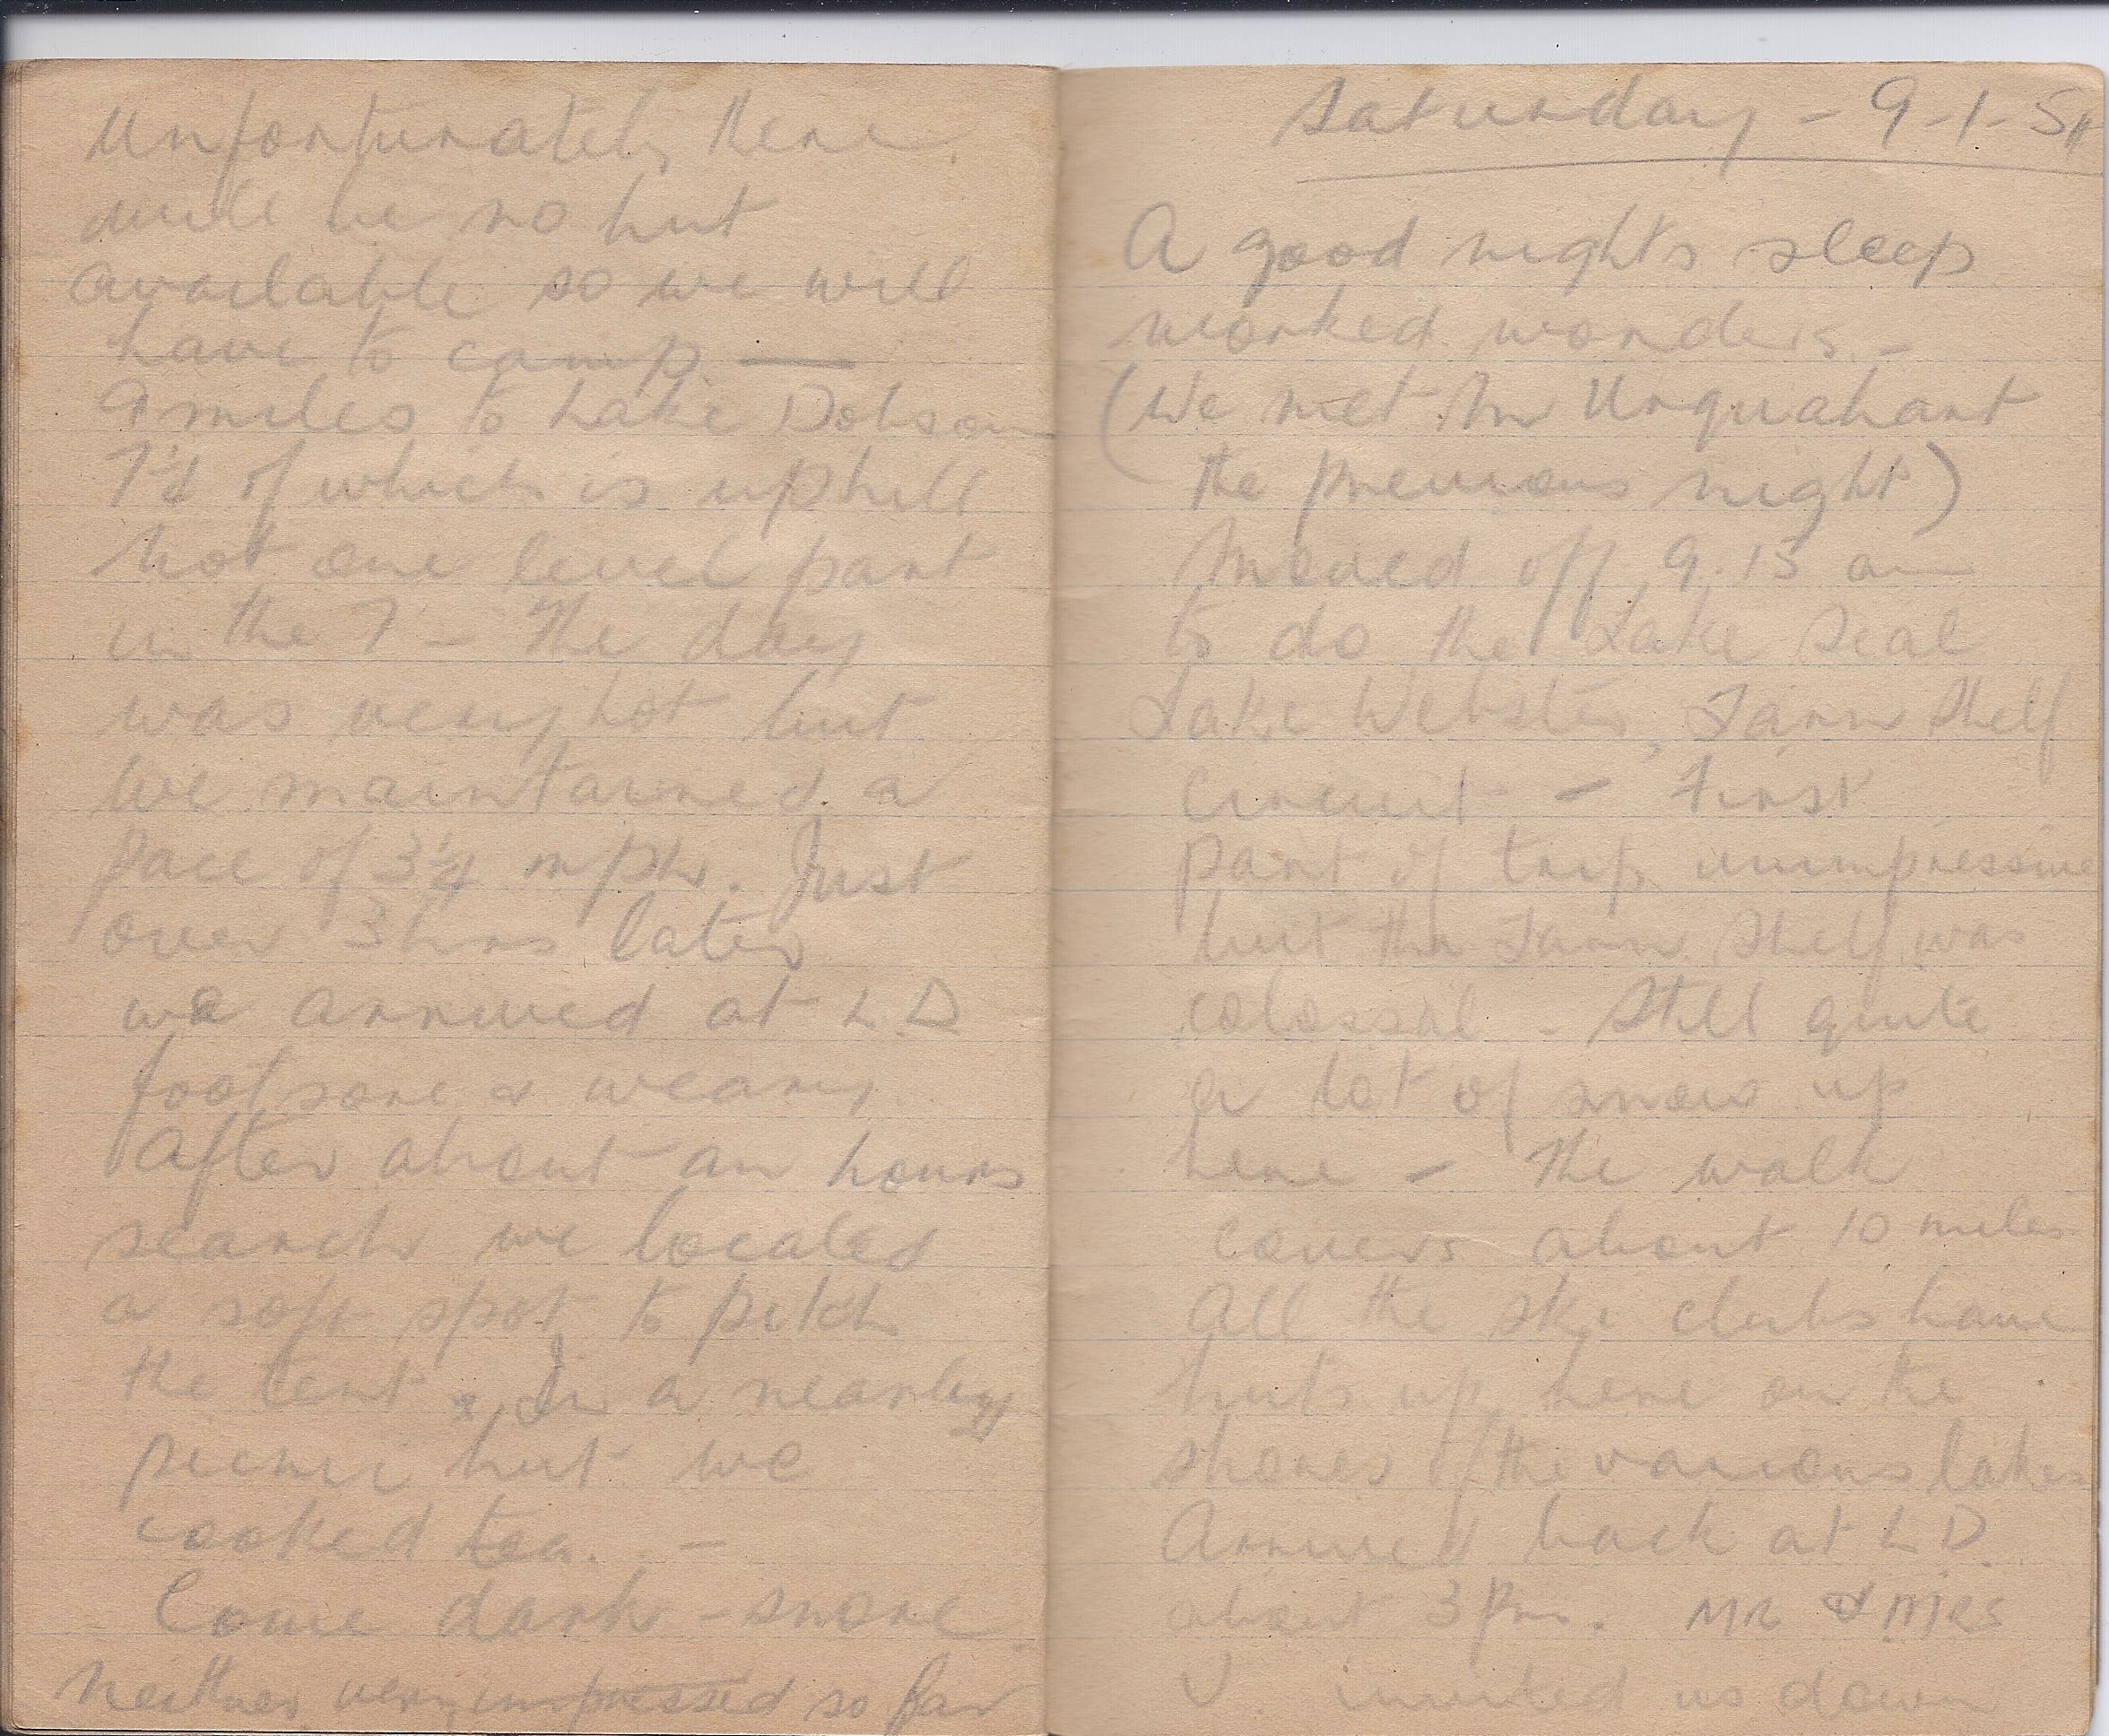 Unfortunately there
will be no hut
available so we will
have to camp. —
9 miles to Lake Dobson
7½ of which is uphill
not one level part
in the 7 – The day
was very hot but
we maintained a
pace of 3¼ mph. Just
over 3 hrs later
we arrived at L.D
footsore & weary.
After about an hours
search we located
a soft spot to pitch
the tent & in a nearby
picnic hut we
cooked tea. –
Come dark – snore.
Neither very impressed so far
Saturday – 9-1-54
A good nights sleep
worked wonders –
(We met Mr Urquahart
the previous night)
Moved off 9.15 am
to do the Lake Seal
Lake Webster, Tarn Shelf
circuit – First
part of trip unimpressive
but the Tarn Shelf was
colossal – Still quite
a lot of snow up
here – The walk
covers about 10 miles
All the ski clubs have
huts up here on the
shores of the various lakes
Arrived back at L.D.
about 3 pm. MR & MRS
U. invited us down